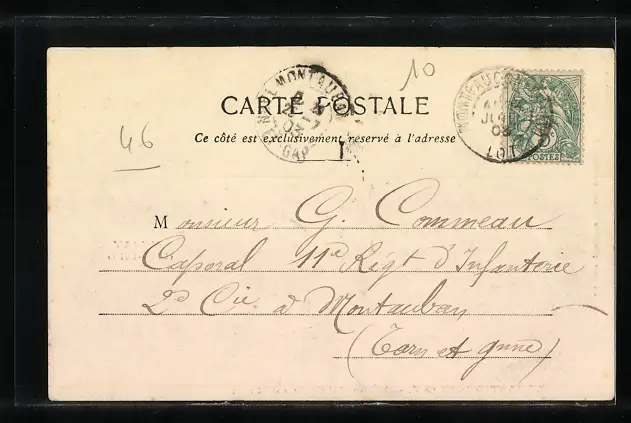 10
CARTE POSTALE
46
Ce côté est exclusivement reservé à l'adresse
MONTAUBAN
GARE
03
LOT
03
5
POSTES
Monsieur G. Commeau
Caporal 11e Régt d'Infanterie
2e Cie à Montauban
(Tarn et Gnne)